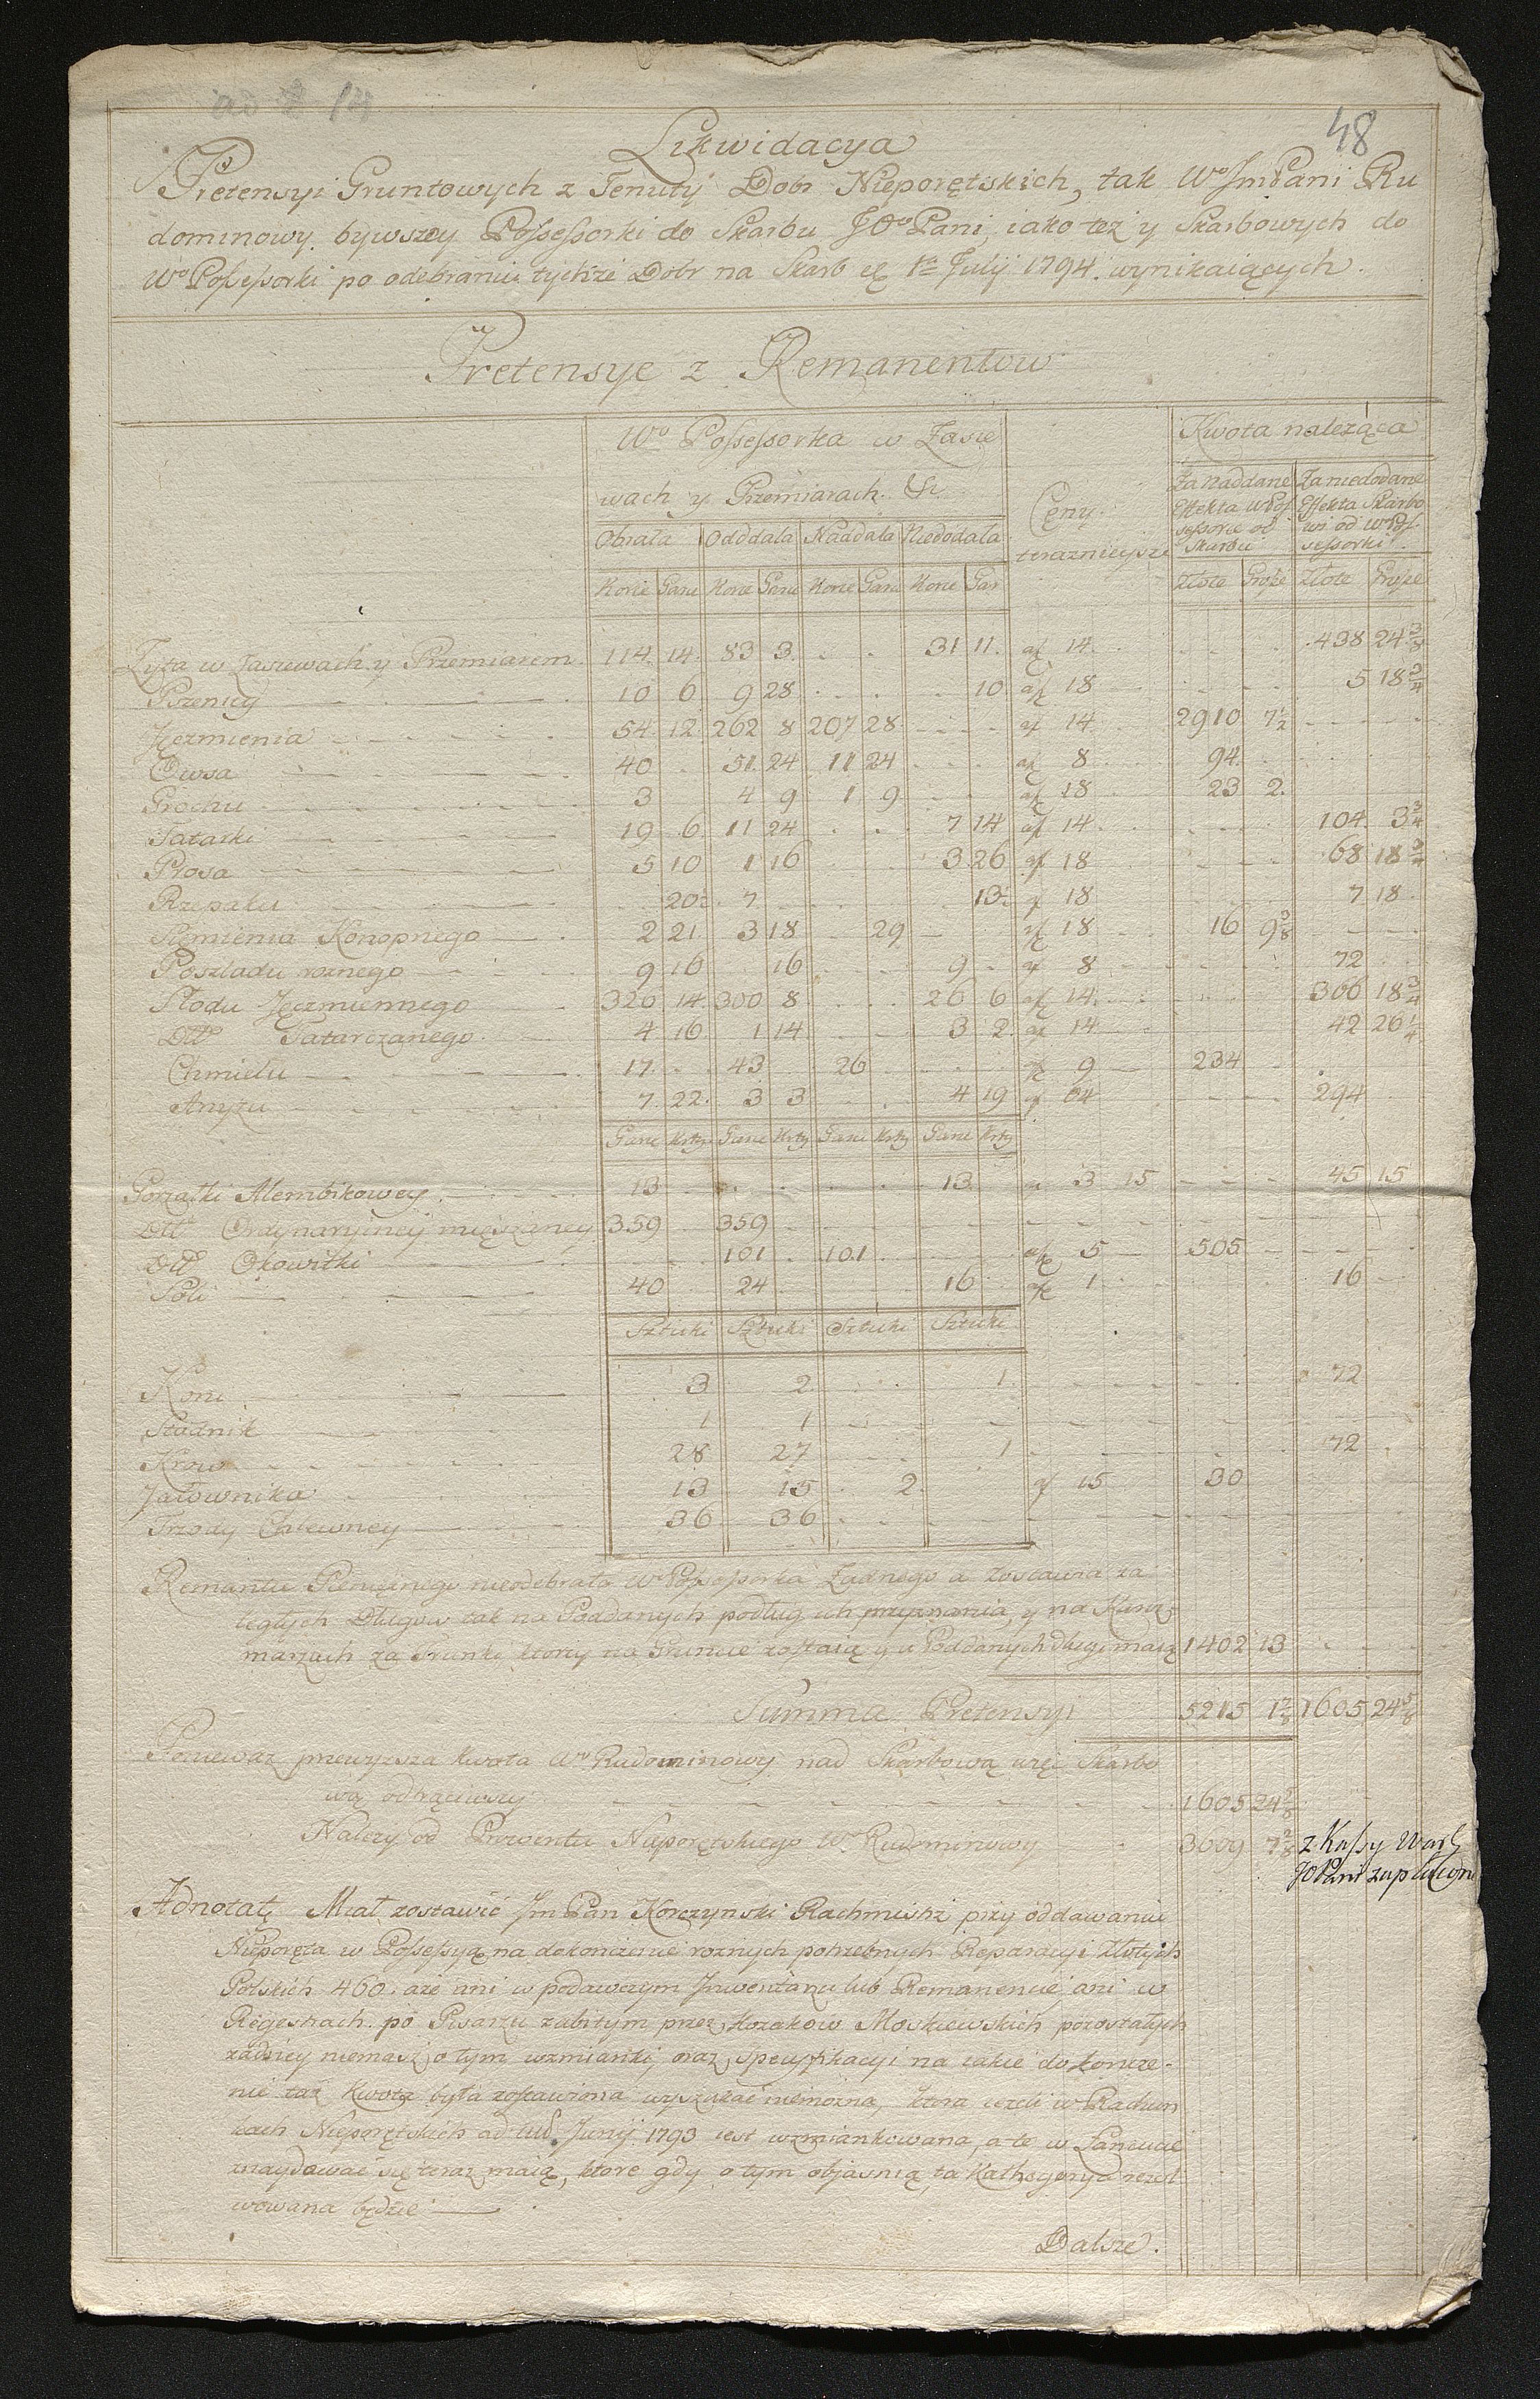 48
Likwidacya
Pretensyi Gruntowych z Tenuty Dobr Nieporętskich, tak Wo JmPani Ru
dominowy bywszey Possessorki do Skarbu JOo Pani, iako też y Skarbowych do
Wo Possessorki po odebraniu tychże Dobr na Skarb 1a Julij 1794. wynikaiących.
Pretensye z Remanentow
Wa Possessorka w Zasie
wach y Przemiarach. &c.
Ceny
terazniejsze
Kwota należąca
Za naddane Effekta WPos
sessorce od Skarbu
Za niedodane Effekta Skarbo
wi od WPos
sessorki.
Obrała Odddała Naddała Niedodała
Korce Garce Korce Garce Korce Garce Korce Gar Złote Grosze Złote Grosze
Zyta w Zasiewach y Przemiarem 114. 14. 83 3. 31 11. af 14. 438 24 3/8
Pszenicy 10 6 9 28 10 af 18 5 18 3/4
Jęczmienia 54. 12. 262 8 207 28 af 14 2910 7 1/2
Owsa 40 51. 24 11 24 af 8 94.
Grochu 3 4 9 1 9 af 18 23 2.
Tatarki 19 6. 11 24 7 14 af 14. 104. 3 3/4
Prosa 5 10 1 16 3 26 af 18 68 18 3/4
Rzepaku 20 1/2 7 13 1/2 af 18 7 18
Siemienia Konopnego 2 21 3 18 29 af 18 16 9 3/8
Poszladu roznego 9 16 16 9 af 8 72
Słodu Jęczmiennego 326 14. 300 8 26 6 af 14. 306 18 3/4
Dtto Tatarczanego 4 16 1 14 3 2. af 14 42 26 1/4
Chmielu 17. 43 26 af 9 234
Anyżu 7. 22. 3 3 4 19 af 64 294
Garce Krty Garce Krty Garce Krty Garce Krty
Gorzałki Alembikowey 13 13 a 3 15 45 15
Dtto Ordynaryiney mięszaney 359 359
Dtto Okowitki 101 101 af 5 505
Soli 40 24 16 af 1 16
Sztuki Sztuki Sztuki Sztuki
Koni 3 2 1 72
Stadnik 1 1
Krow 28 27 1 72
Jałownika 13 15 2 af 15 30
Trzody Chlewney 36 36
Remanentu Pieniężnego nieodebrała Wa Possessorka Zadnego a zostawia za
ległych Długow tak na Poddanych podług ich przyznania, y na Karcz
marzach za Trunki, ktorzy na Gruncie zostaią y u Poddanych długi maią 1402 13
Summa Pretensyi 5215 1 7/8 1605 24 5/8
Ponieważ przewyższa kwota Wo Rudominowy nad Skarbową więc Skarbo
wą odtrąciwszy 1605 24 5/8
Należy od Prowentu Nieporętskiego Wo Rudominowy 3609 7 2/8
z Kassy Wars
JOPani zapłacono
Adnotata Miał zostawić Jm Pan Korczynski Rachmistrz przy oddawaniu
Nieporęta w Possessyą na dokończenie roznych potrzebnych Reparacyi Złotych
Polskich 460. aże ani w podawczym Jnwentarzu lub Remanencie, ani w
Regestrach po Pisarzu zabitym przez Kozakow Moskiewskich pozostałych
żadney niemasz o tym wzmianki, oraz Specyfikacyi na iakie dokończe-
nie taż kwota była zostawiona wyszukać niemożna, ktora ieżeli w Rachun
kach Nieporętskich ad Junij 1793 iest wzmiankowana, a te w Łancucie
znaydować się teraz maią, ktore gdy o tym objasnią, ta Kathegorya rezol
wowana będzie
Dalsze.